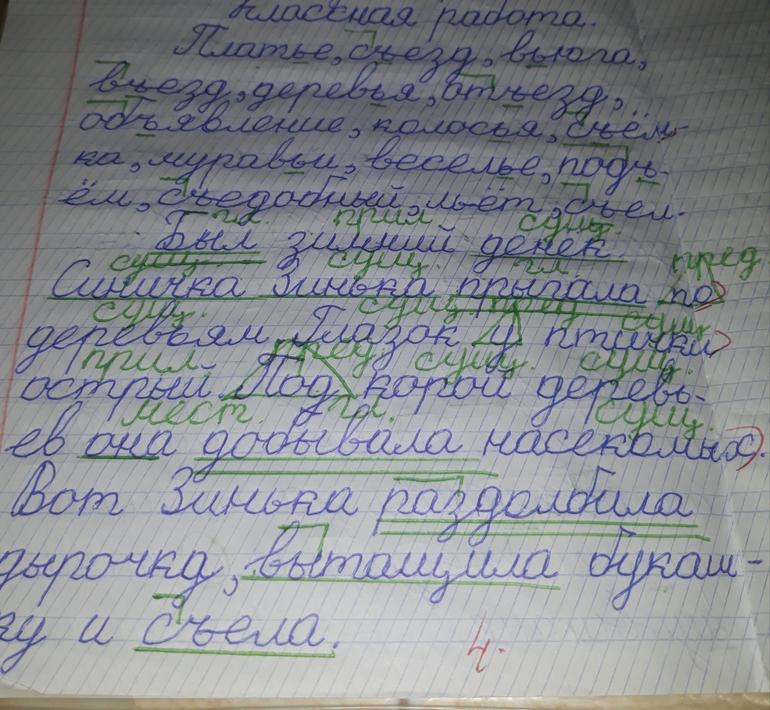 Классная работа.
Платье, съезд, вьюга,
въезд, деревья, отъезд,
объявление, колосья, съём-
ка, муравьи, веселье, подъ-
ём, съедобный, льёт, съел.
гл. прил сущ.
Был зимний денек.
сущ сущ. гл. пред
Синичка Зинька прыгала по
сущ. сущ пред сущ.
деревьям. Глазок у птички
прил. пред сущ. сущ.
острый. Под корой деревь-
мест. гл. сущ.
ев она добывала насекомых.
Вот Зинька раздолбила
дырочку, вытащила букаш-
ку и съела.
4.